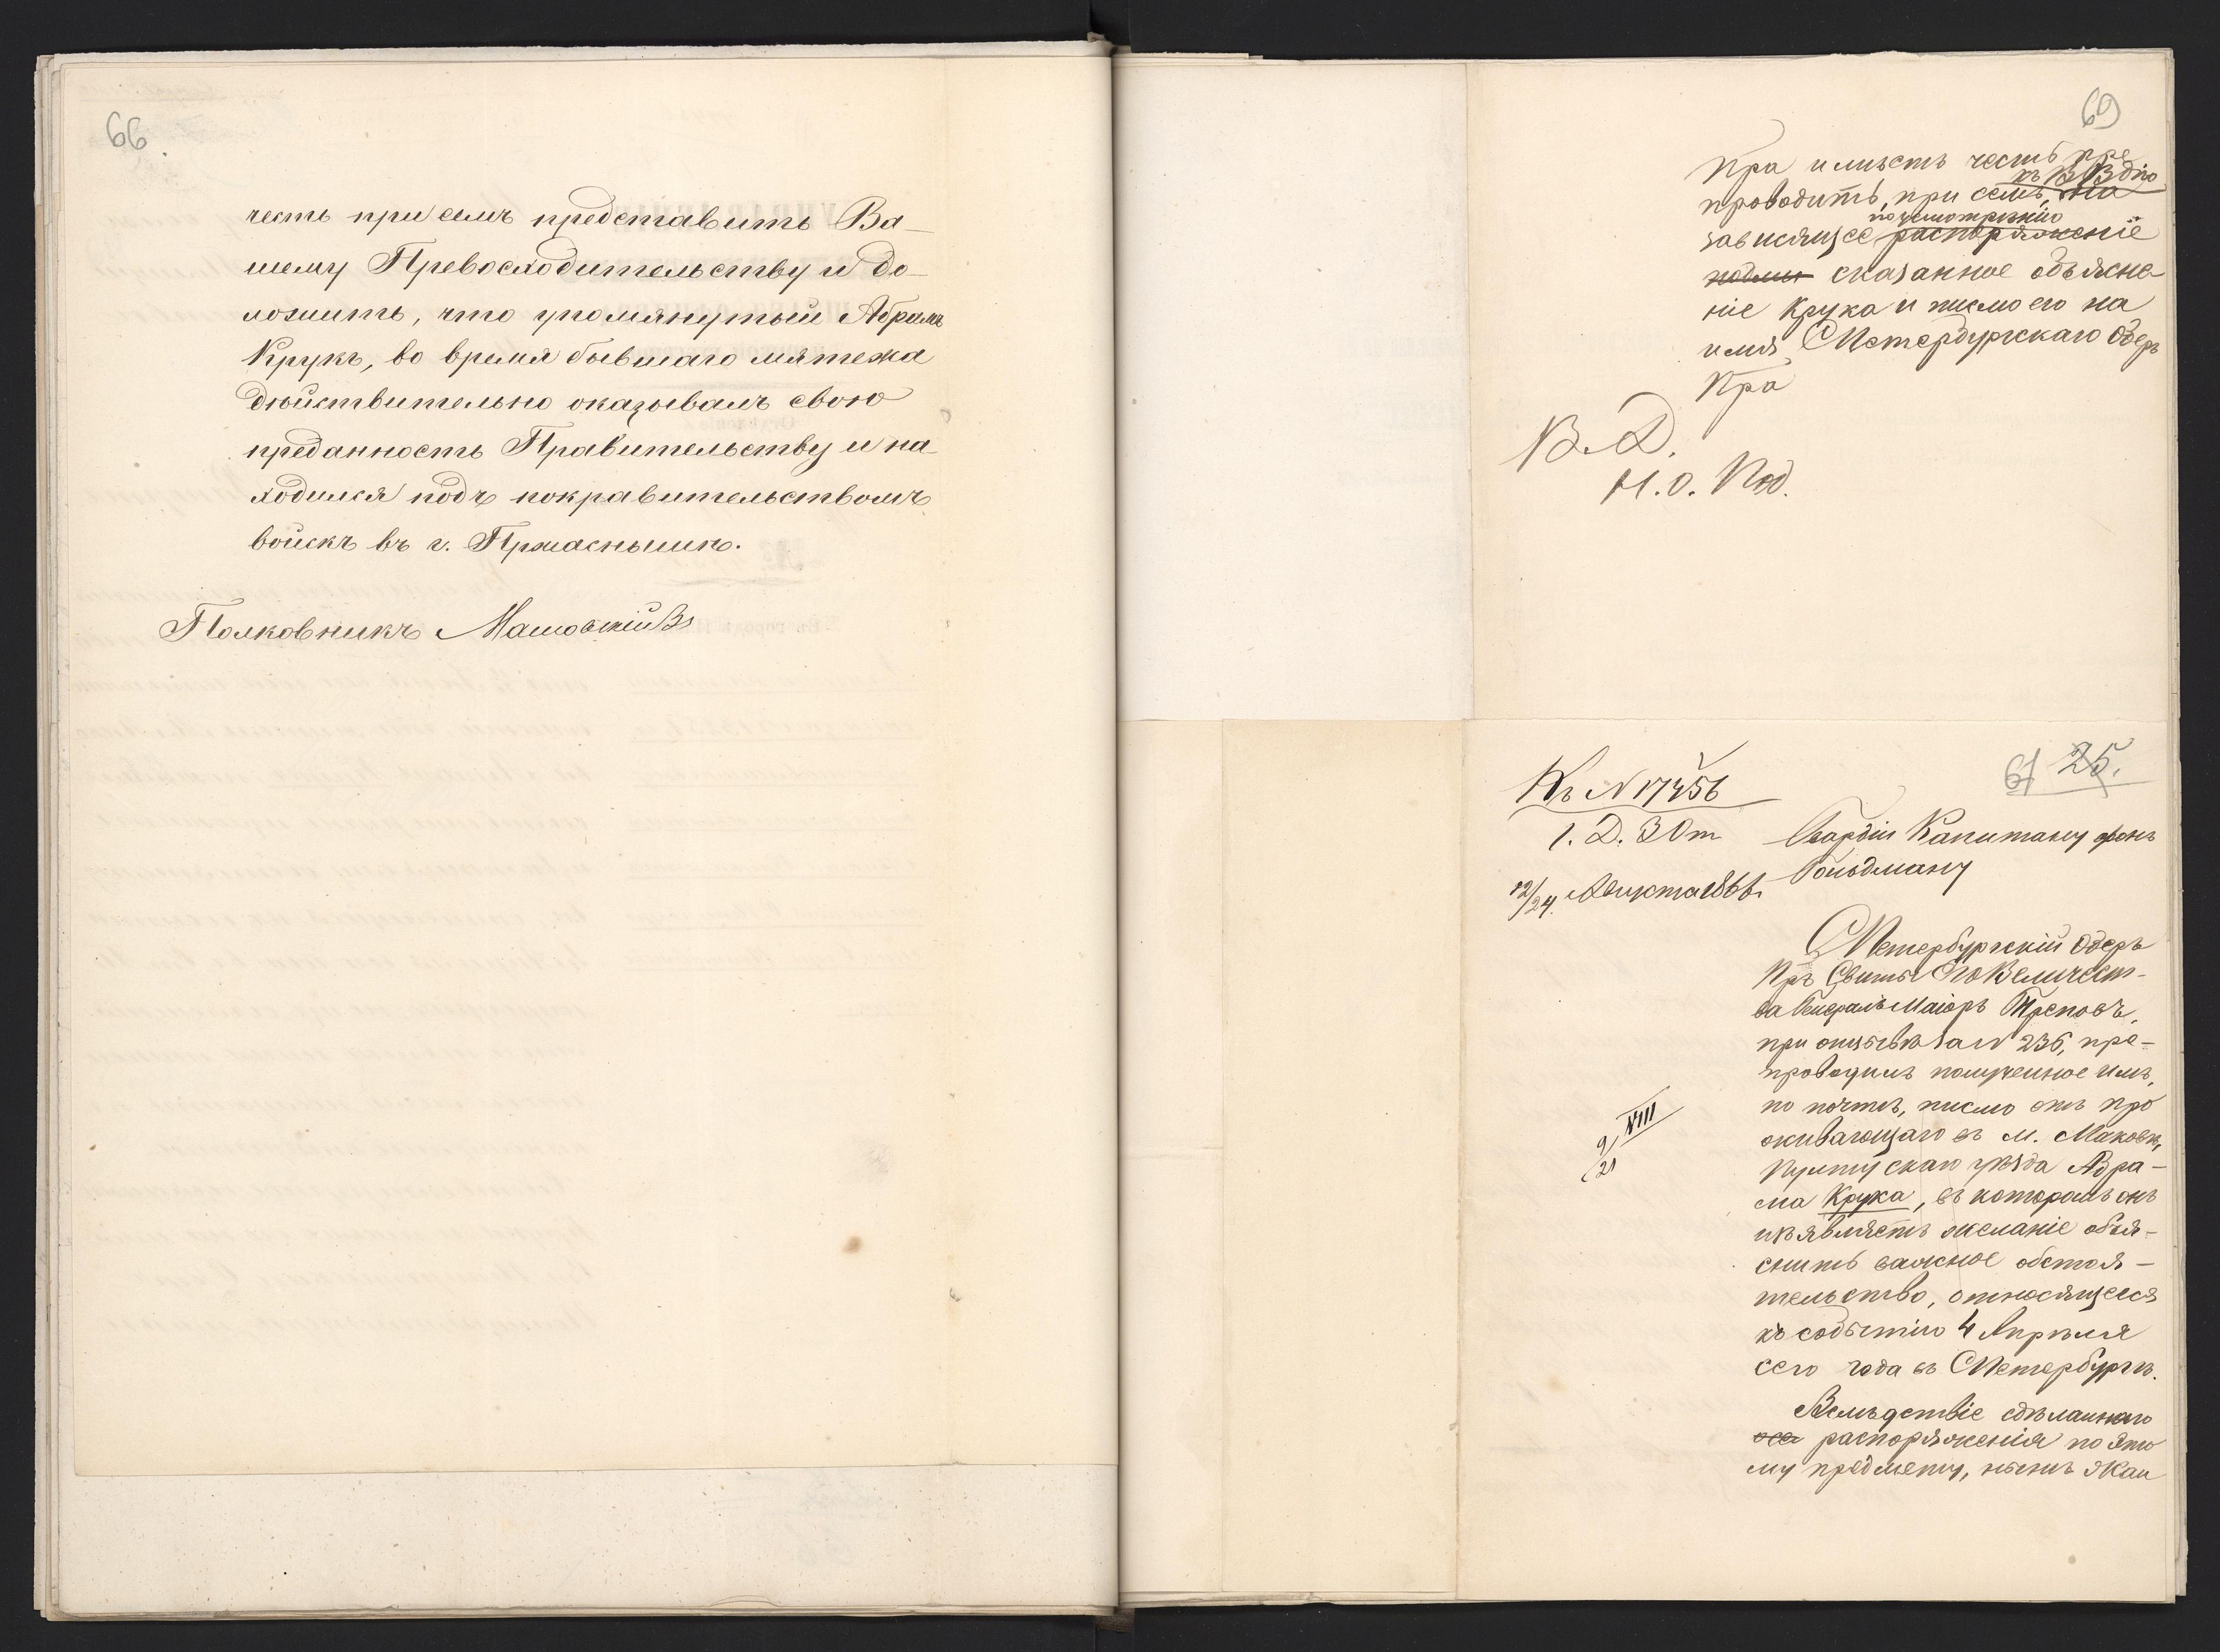 66.
честь при семъ представить Ва-
шему Превосходительству и до-
ложить, что упомянутый Абрамъ
Крукъ, во время бывшаго мятежа
дѣйствительно оказывалъ свою
преданность Правительству и на-
ходился подъ покравительствомъ
войскъ въ г. Пржаснышѣ.
Полковникъ
69
Кра имѣетъ честь пре
къ В Вдію
проводить, при семъ, на
по усмотрѣнію
зависящее распоряженіе
сказанное объясне-
ніе Крука и письмо его на
имя СПетербургскаго Оберъ
Кра
В. Д.
Н. О. Под.
61 25.
Къ N 17456
1. Д. 3 От
12/24 Августа 1866.
Гвардіи Капитану фонъ
Вольдману
СПетербургскій Оберъ
Кръ Свиты Его Величест-
ва Генералъ Маіоръ Треповъ,
при отзывѣ за N 236, пре-
проводилъ полученное имъ,
по почтѣ, письмо отъ про
живающаго въ м. Маковѣ,
Пултускаго уѣзда Абра-
ма Крука, въ которомъ онъ
изъявляетъ желаніе объя-
снить важное обстоя-
тельство, относящееся
къ событію 4 Апрѣля
сего года въ СПетербургѣ.
9/21 VIII
Вслѣдствіе сдѣланнаго
распоряженія по это
му предмету, нынѣ я Кан